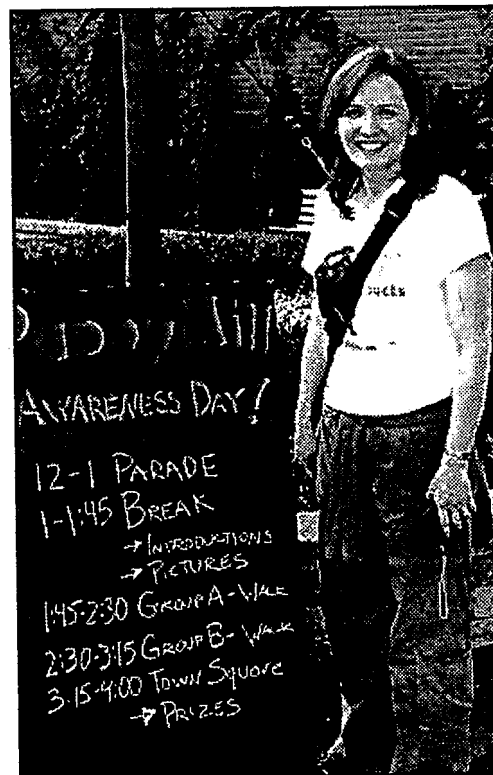 Puppy Mill
AWARENESS DAY!
12-1 PARADE
1-1:45 BREAK
→ INTRODUCTIONS
→ PICTURES
1:45-2:30 GROUP A-WALK
2:30-3:15 GROUP B-WALK
3:15-4:00 TOWN SQUARE
→ PRIZES